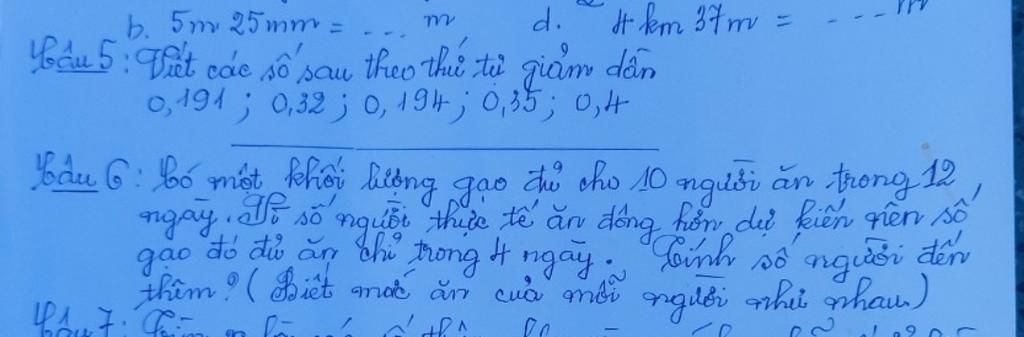 b. 5m 25mm = ... m d. 4km 37m = ... m
Câu 5: Viết các số sau theo thứ tự giảm dần
0,191 ; 0,32 ; 0,194 ; 0,35 ; 0,4
Câu 6: Có một khối lượng gạo đủ cho 10 người ăn trong 12
ngày. Vì số người thực tế ăn đông hơn dự kiến nên số
gạo đó đủ ăn chỉ trong 4 ngày. Tính số người đến
thêm? (Biết mức ăn của mỗi người như nhau)
Câu 7: